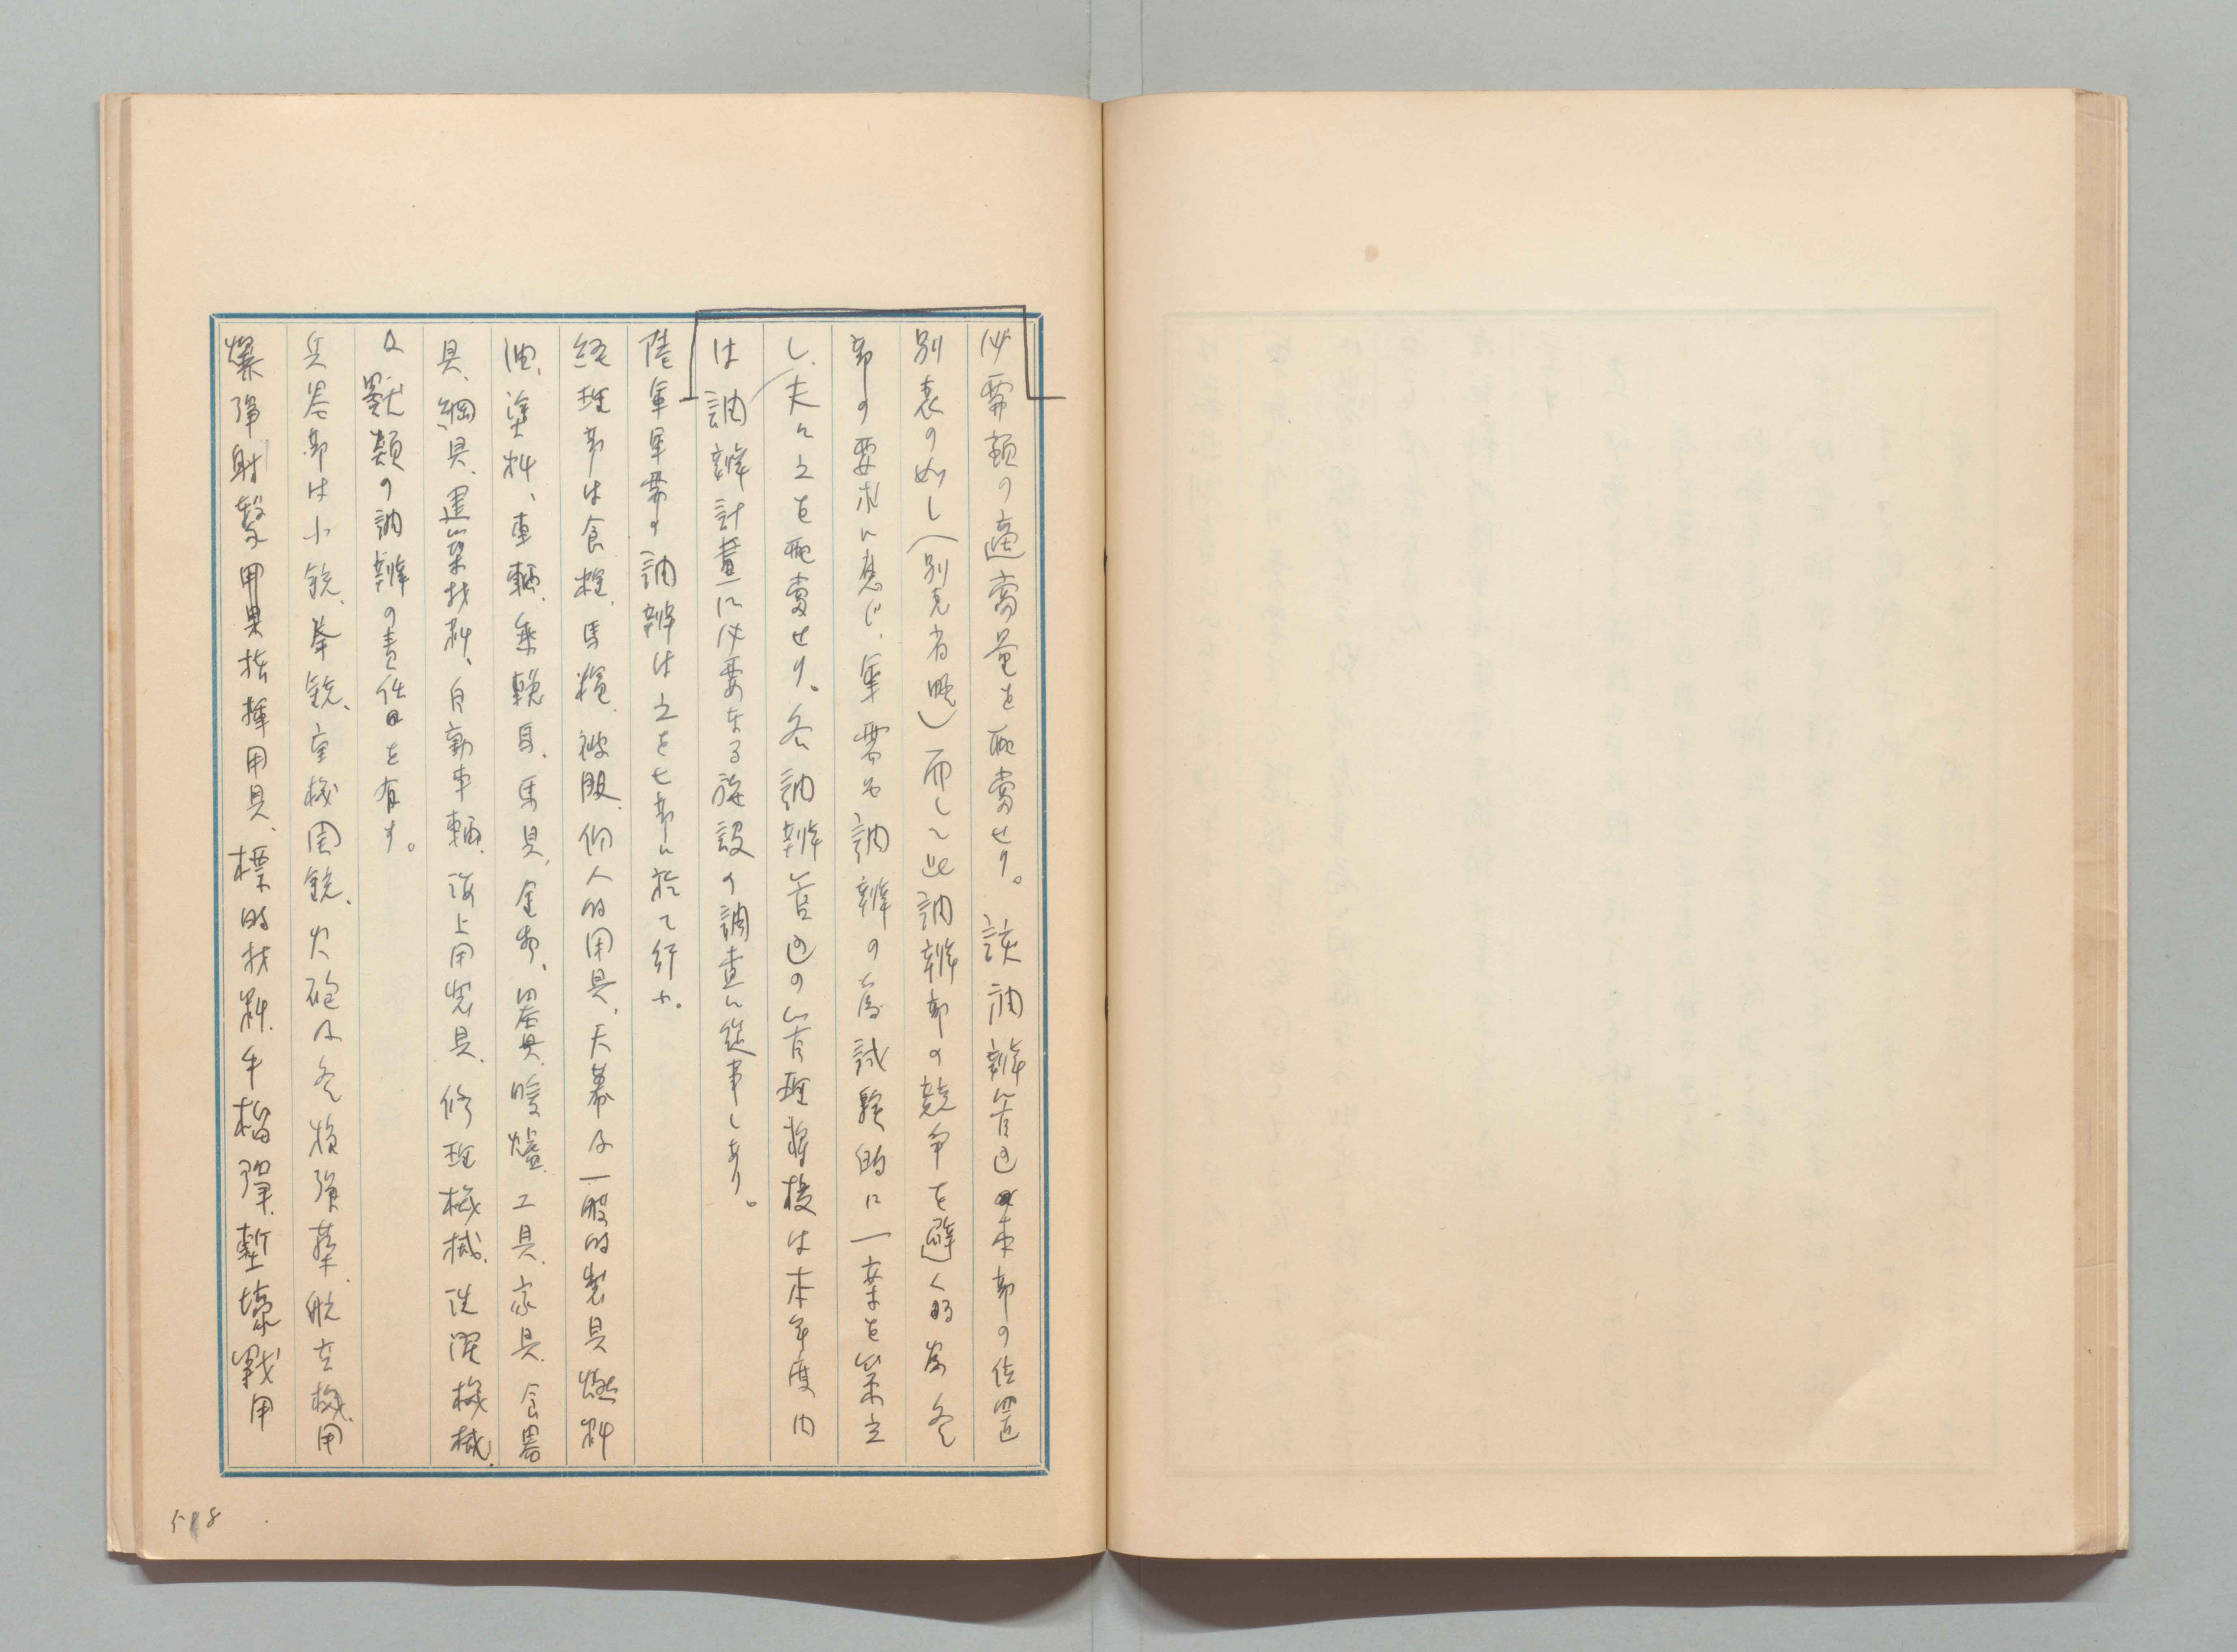 必需額の適當量を配當せり。該調辨管区本部の位置
別表の如し（別表省略）而して此調辨部の競争を避くる爲各
部の要求に應じ、軍需品調辨の爲試験的に一案を策立
し、夫々之を配當せり。各調辨管区の管理將校は本年度内
は調辨計畫に必要なる施設の調査に從事しあり。
陸軍軍需の調辨は之を七部に於て行ふ。
経理部は食糧、馬糧、被服、個人的用具、天幕及一般的製具燃料
油、塗料、車輛、乗鞍具、馬具、金物、署具、暖爐、工具、家具、食器
具、綱具、建築材料、自動車輛、海上用器具、修理機械、洗濯機械、
及獸類の調辨の責任を有す。
兵器部は小銃、拳銃、重機関銃、火砲及各種彈藥、航空機用
爆彈射撃用具指揮用具、標的材料、手榴彈、塹壕戰用
518